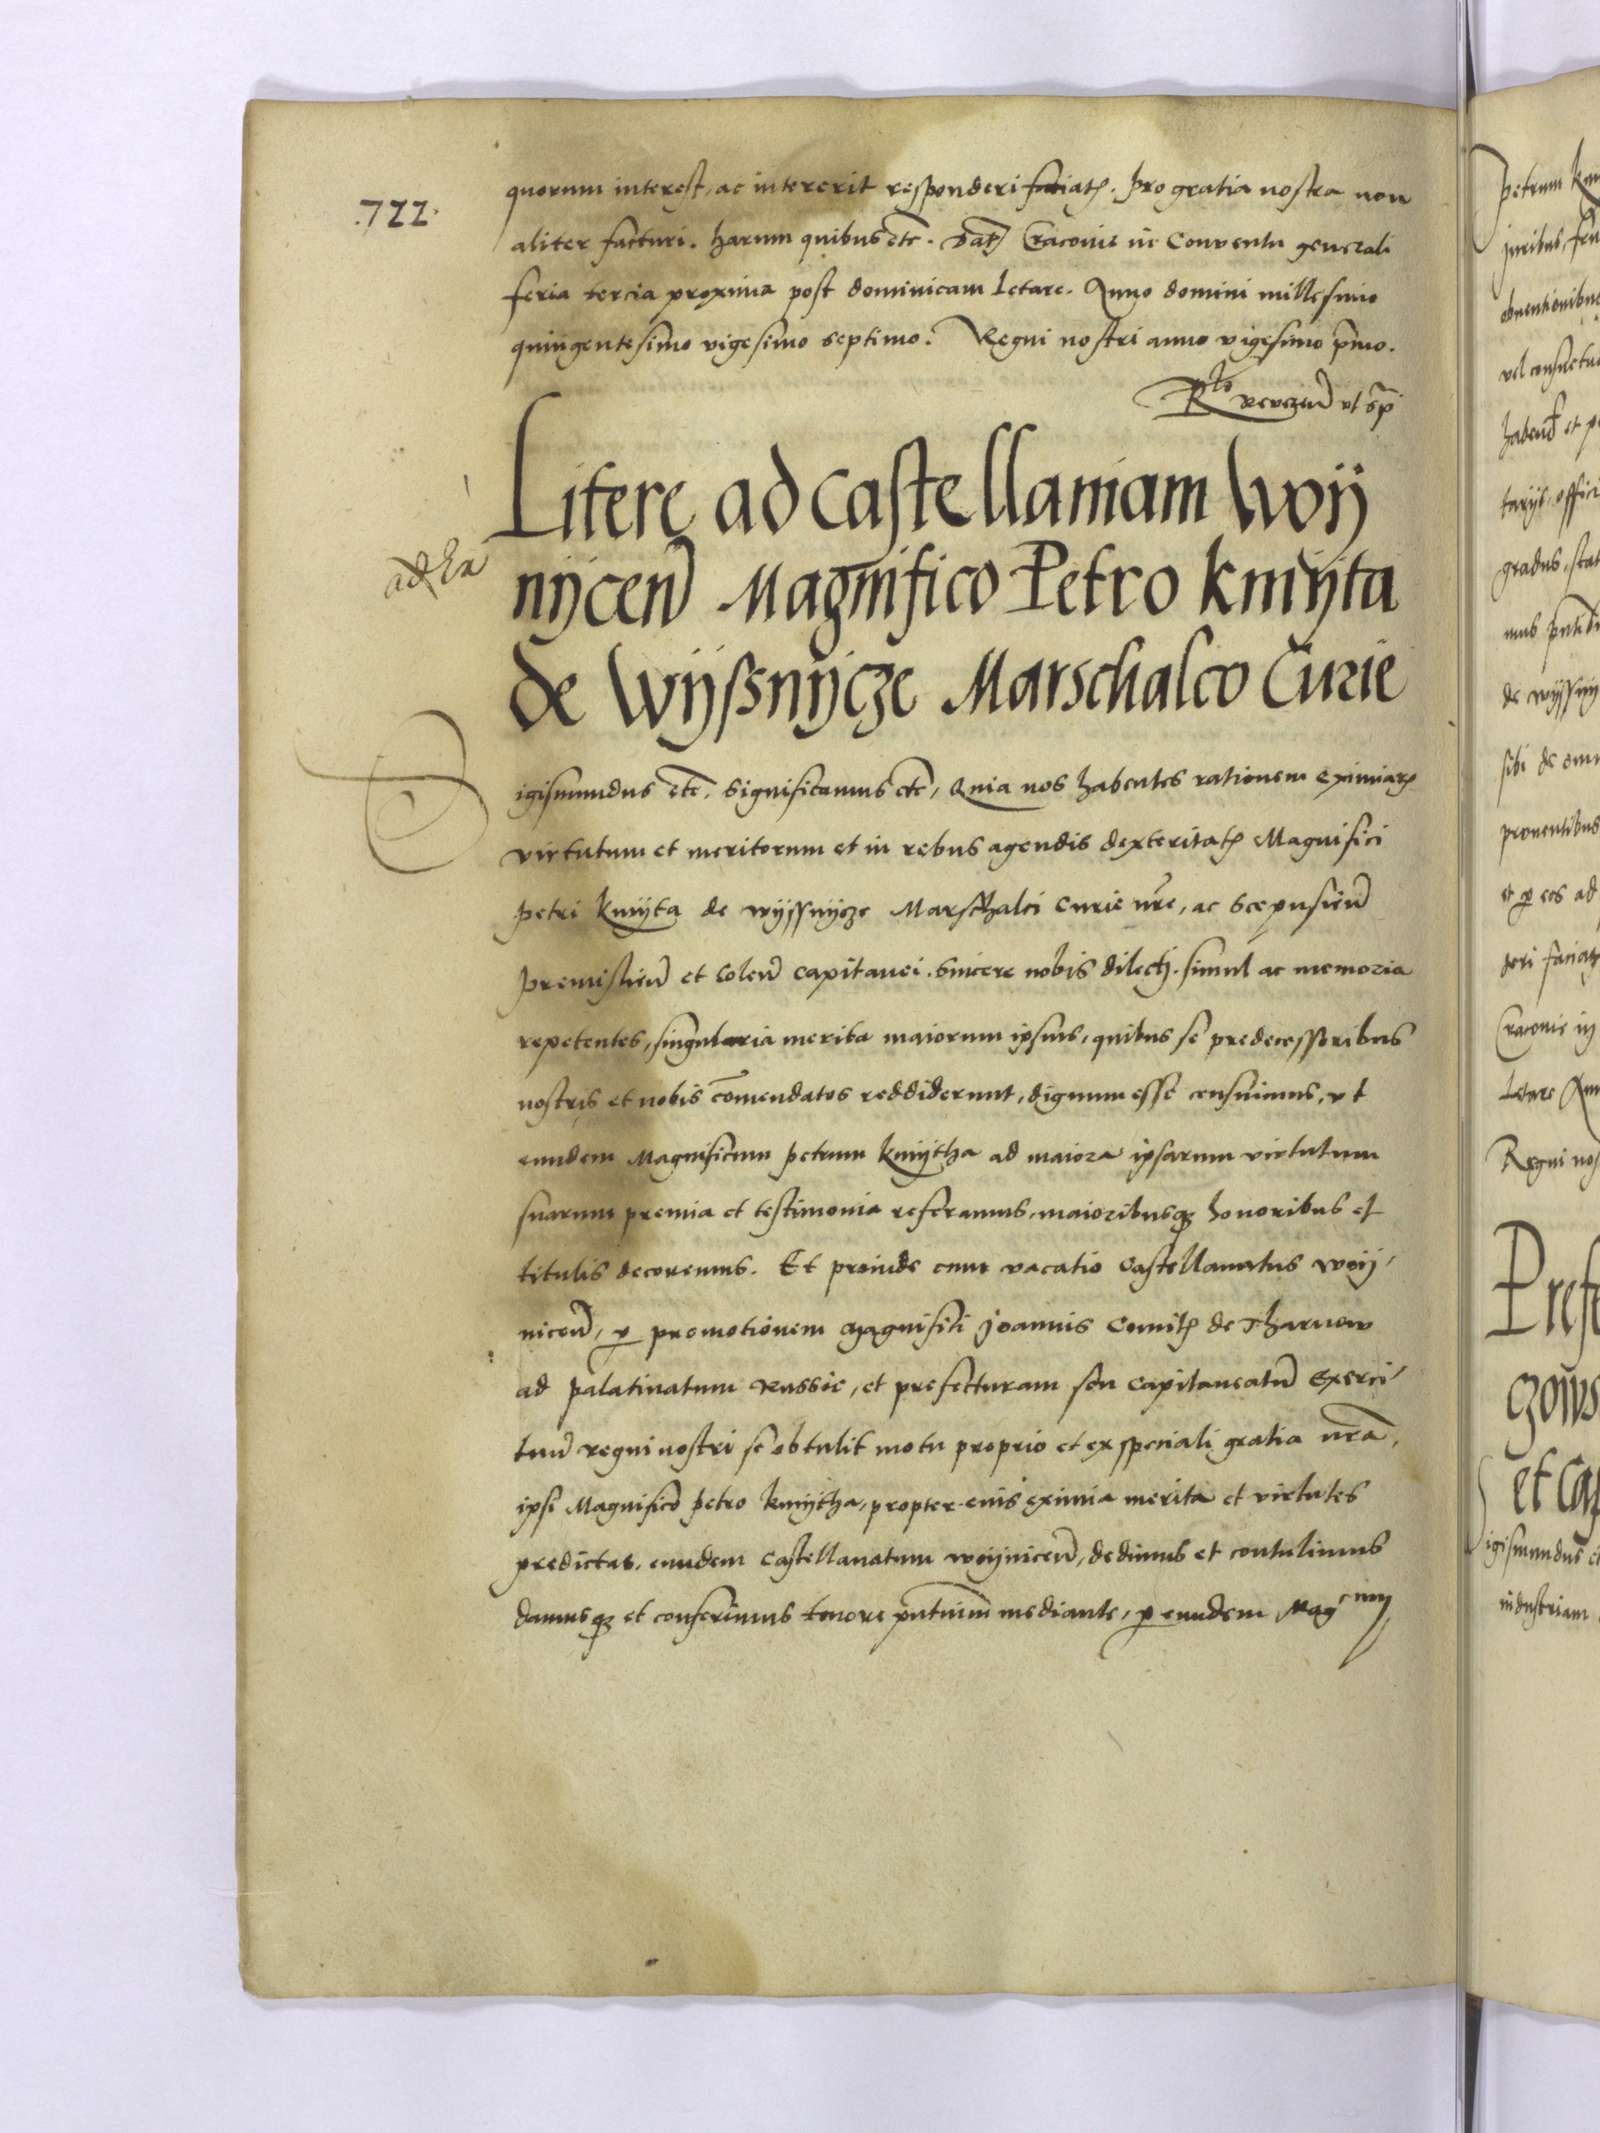 .722.
quorum interest, ac intererit responderi faciatꝭ. pro gratia nostra non
aliter facturi. harum quibus etc. Datꝭ Cracovie in Conventu generali
feria tercia proxima post dominicam Letare. Anno domini millesimo
quingentesimo vigesimo septimo. Regni nostri anno vigesimo p̄mo.
Rᵗᵒ Reverēn̄ vt sp̄
Litere ad castellaniam Woÿ
nÿcen̄ Magnifico Petro kmÿta
de Wÿßnÿcze Marschalco Curie
Sigismundus etc. Significamus etc, Quia nos habentes rationem eximiarꝭ
virtutum et meritorum et in rebus agendis dexteritatꝭ Magnifici
Petri kmÿta de wÿssnÿcze Marschalci curie nr̄e, ac Scepusien̄
Premislien̄ et Colen̄ capitanei. Sincere nobis dilecti. simul ac memoria
repetentes, singularia merita maiorum ipsius, quibus se predecessoribus
nostris et nobis com̄endatos reddiderunt, dignum esse censuimus, vt
eundem Magnificum petrum kmÿtha ad maiora ipsarum virtutum
suarum premia et testimonia referamus, maioribusqꝫ honoribus et
titulis decoremus. Et proinde cum vacatio Castellanatus woÿ-
nicen̄, ꝑ promotionem Magnifici Joannis Comitꝭ de Tharnow
ad palatinatum Russie, et prefecturam seu Capitaneatū Exerci-
tuū regni nostri se obtulit motu proprio et ex speciali gratia nr̄a,
ipsi Magnifico petro kmÿtha, propter eius eximia merita et virtutes
predictas, eundem Castellanatum woÿnicen̄, dedimus et contulimus
damusqꝫ et conferimus tenore pn̄tium mediante, ꝑ eundem Magᶜᵘᵐ